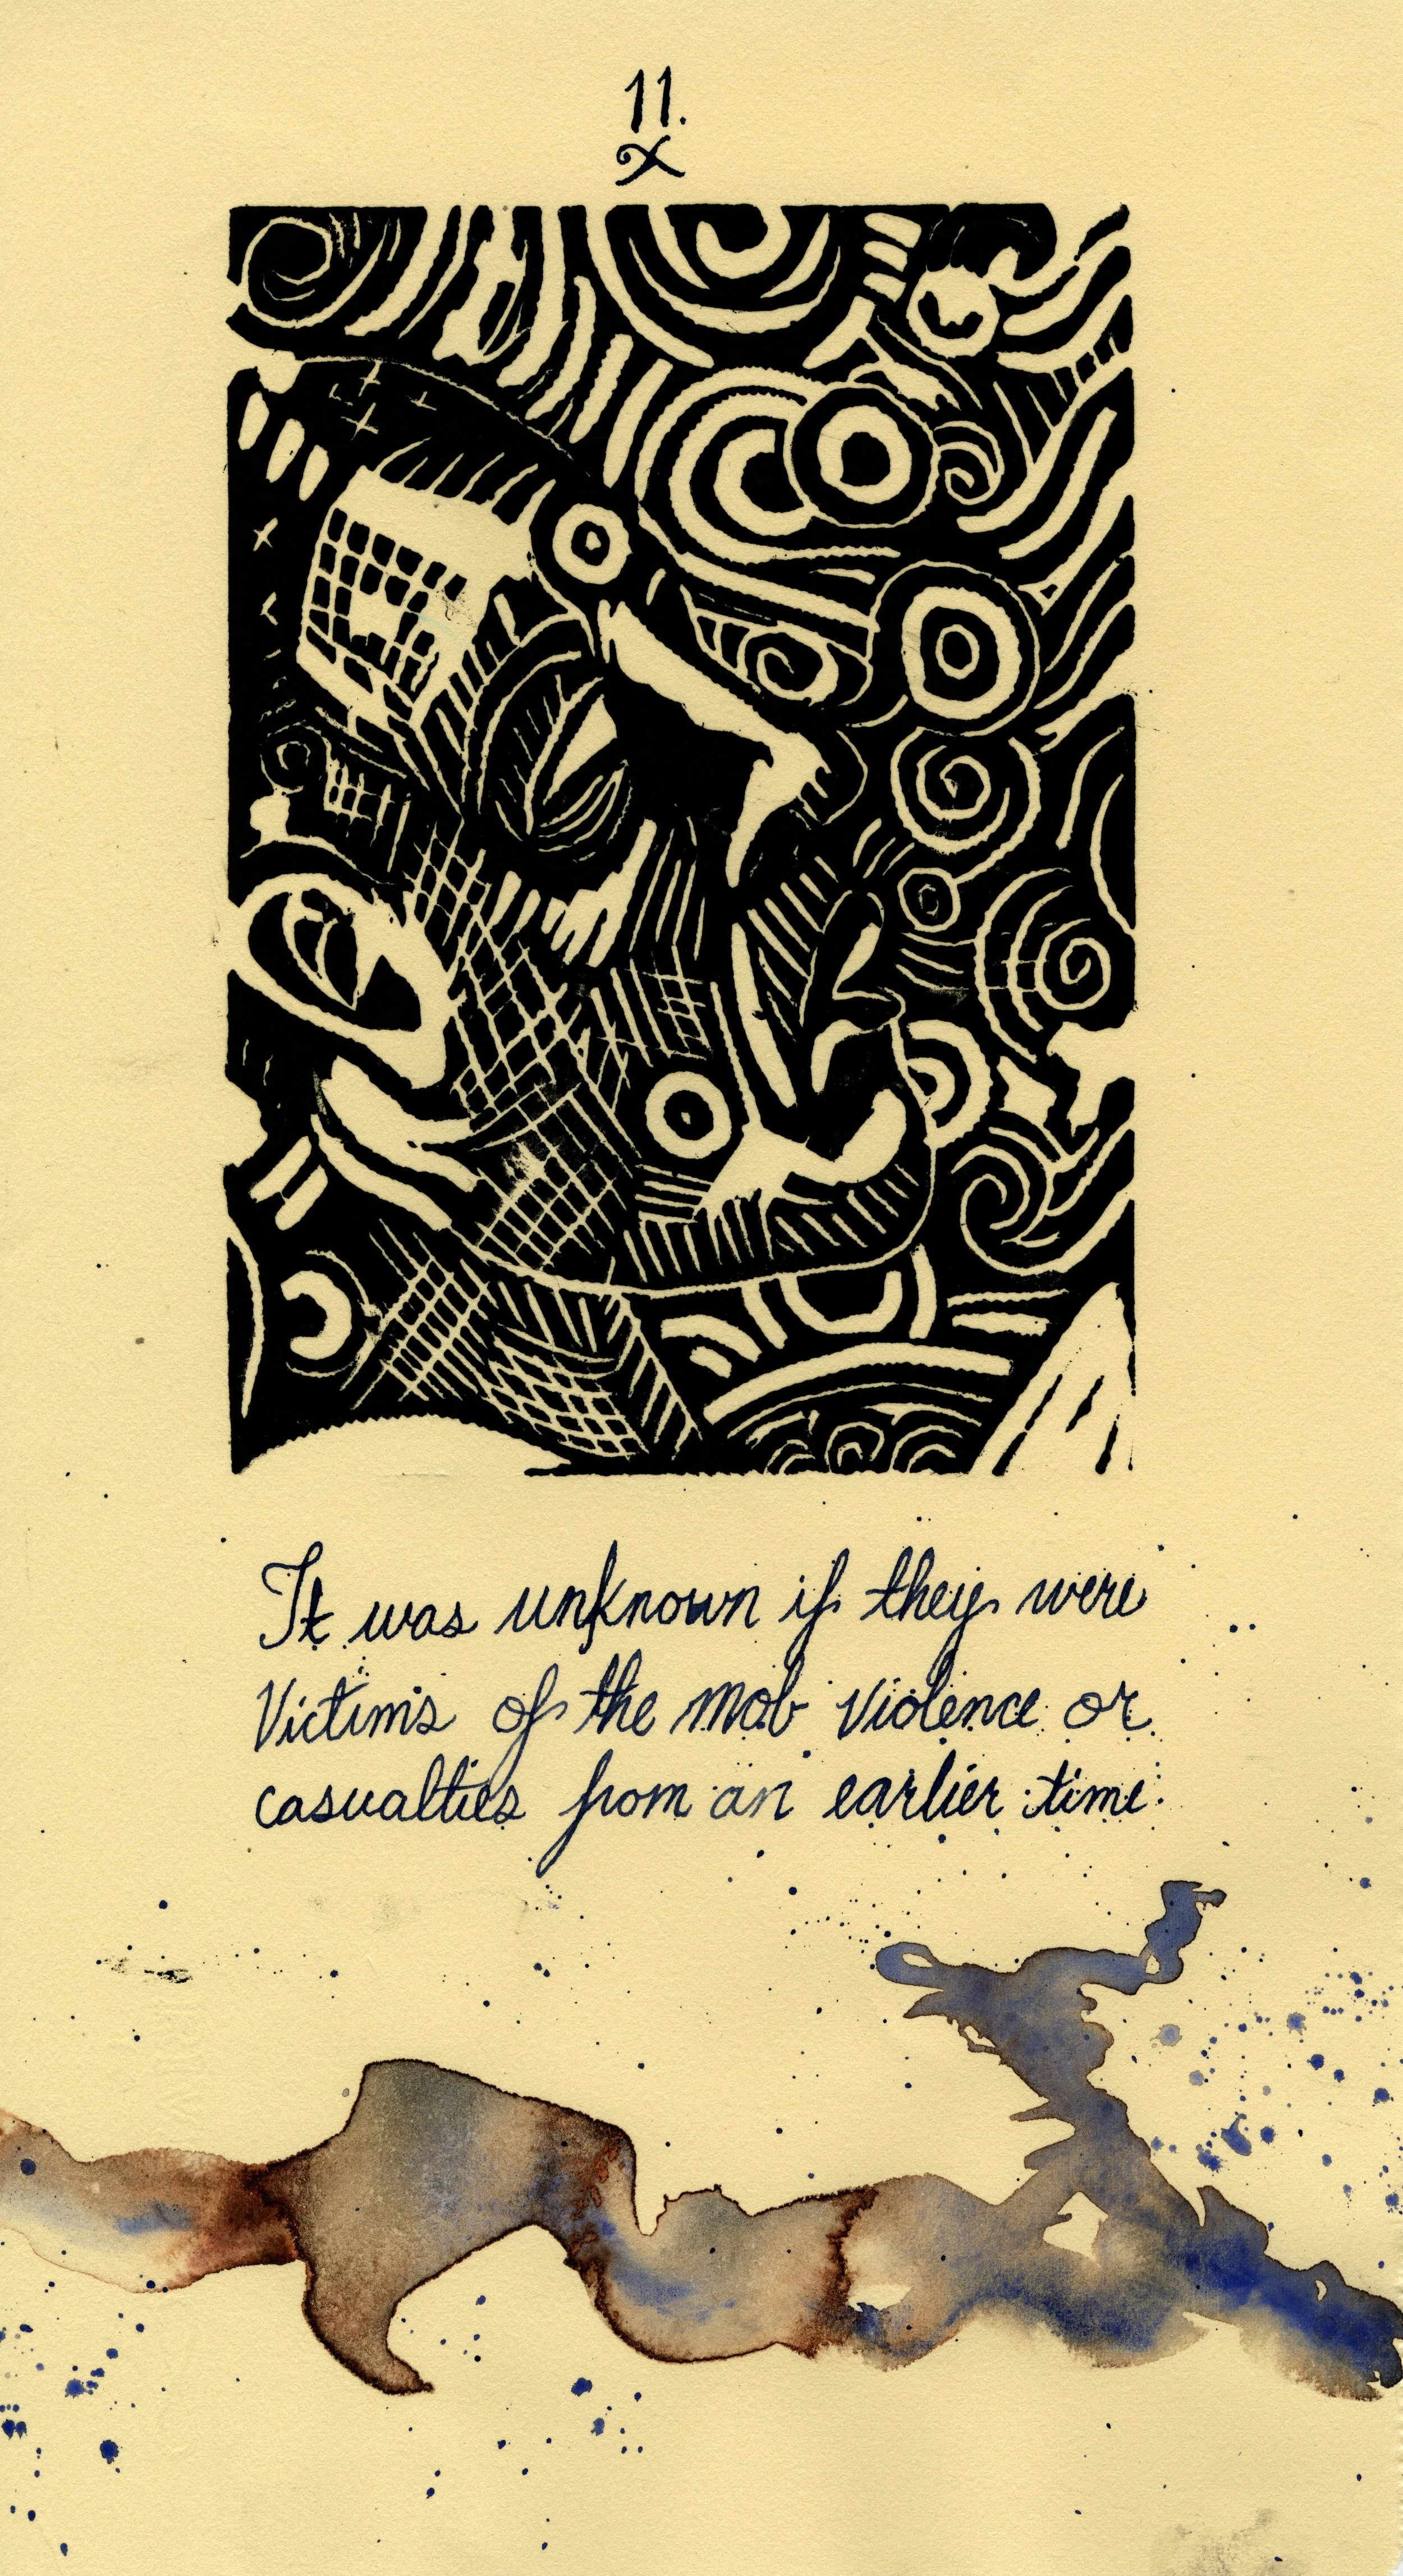 11.
It was unknown if they were
Victims of the mob violence or
casualties from an earlier time.